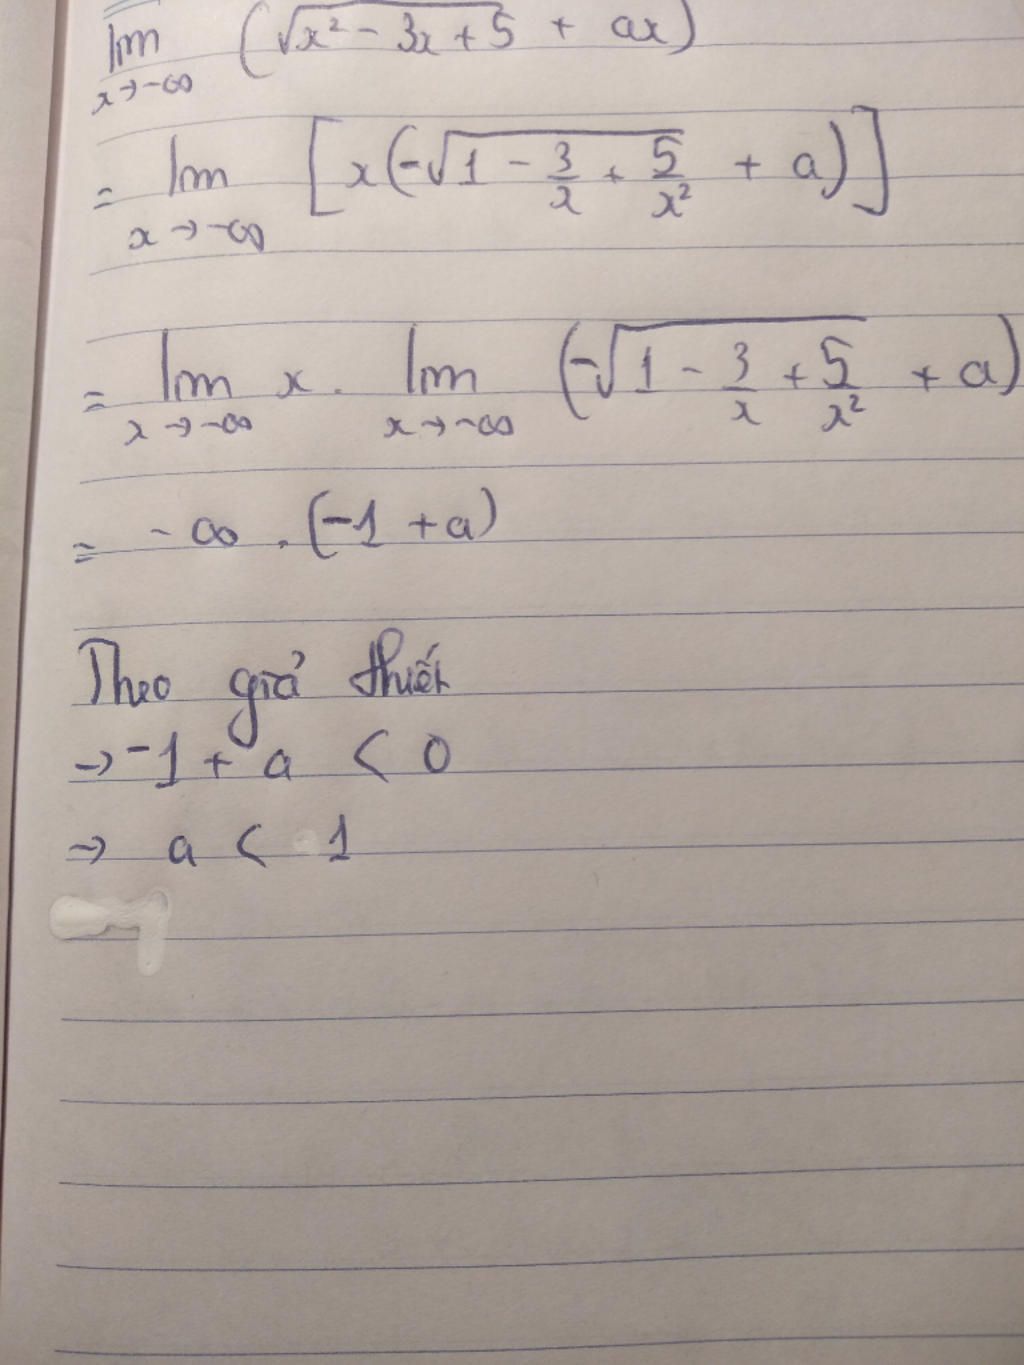 lim (√(x² - 3x + 5) + ax)
x→-∞
= lim [x(-√(1 - 3/x + 5/x²) + a)]
x→-∞
= lim x . lim (-√(1 - 3/x + 5/x²) + a)
x→-∞ x→-∞
= -∞ . (-1 + a)
Theo giả thiết
→ -1 + a < 0
→ a < 1